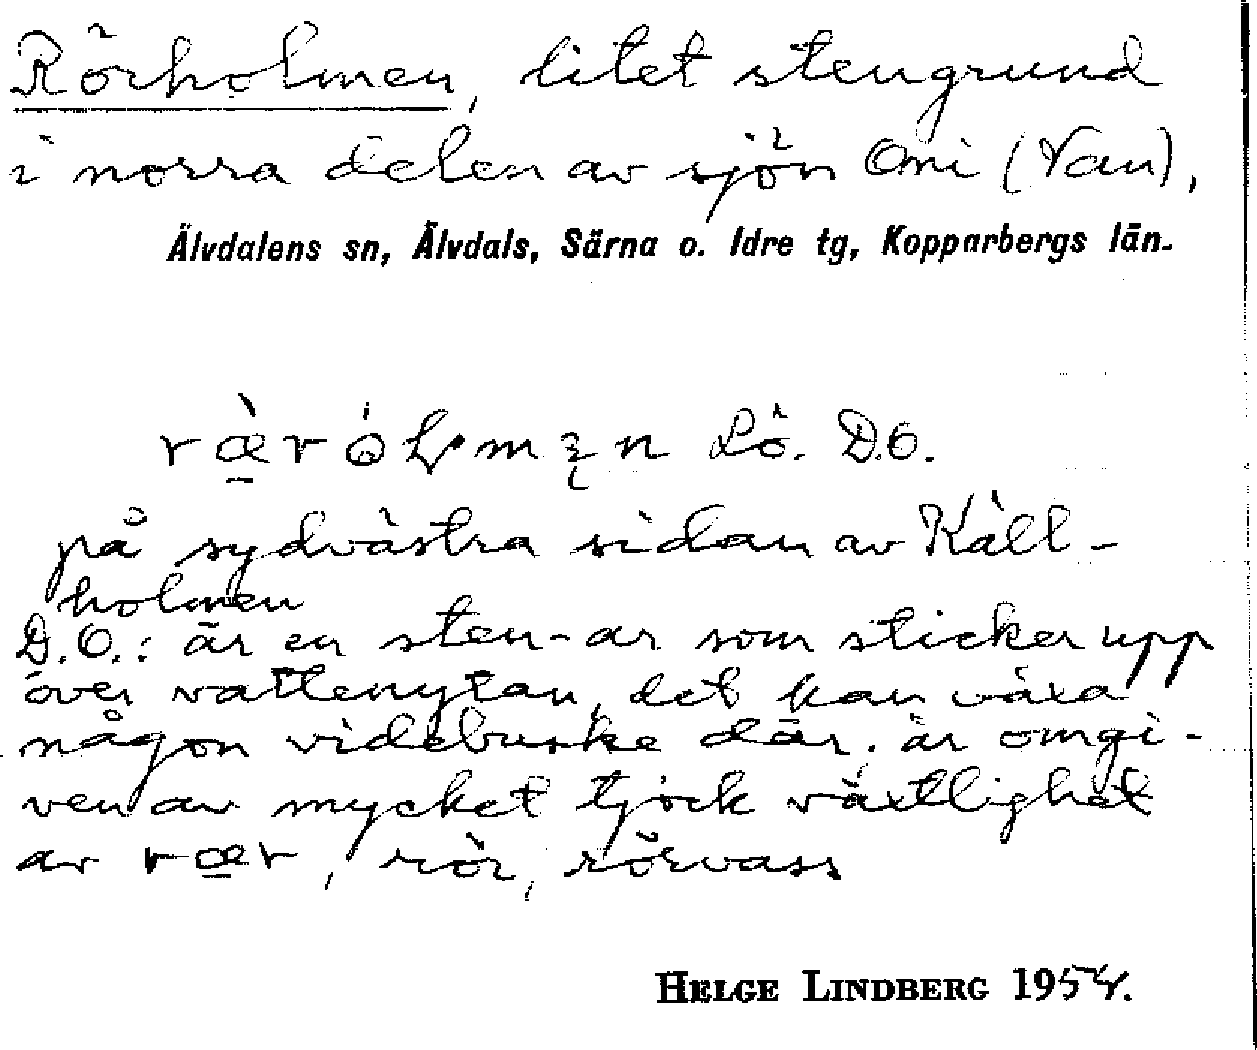 Rörholmen, litet stengrund
i norra delen av sjön Omi (Van),
Älvdalens sn, Älvdals, Särna o. Idre tg, Kopparbergs län.
Lö. D.O.
på sydvästra sidan av Käll-
holmen
D.O.: är en sten-ar som sticker upp
över vattenytan, det kan växa
någon videbuske där. är omgi-
ven av mycket tjock växtlighet
av rær, rör, rörvass
HELGE LINDBERG 1954.